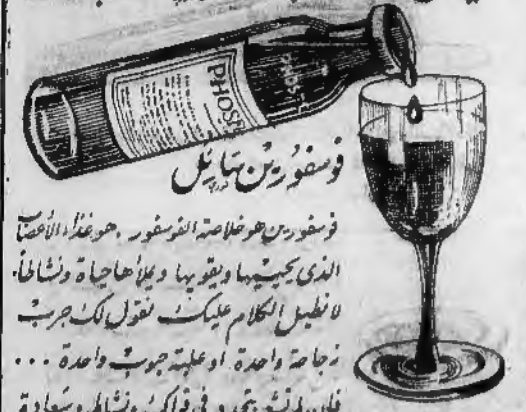 PHOS
فوسفورين هايل
فوسفورين هو خلاصة الفوسفور . هو غذاء الأعصاب
الذى يحييها ويقويها ويملأها حياة ونشاطاً .
لا نطيل الكلام عليك نقول لك جرب
زجاجة واحدة . او علبة حبوب واحدة ...
فان لم تشعر فى قواك ونشاط وسعادة